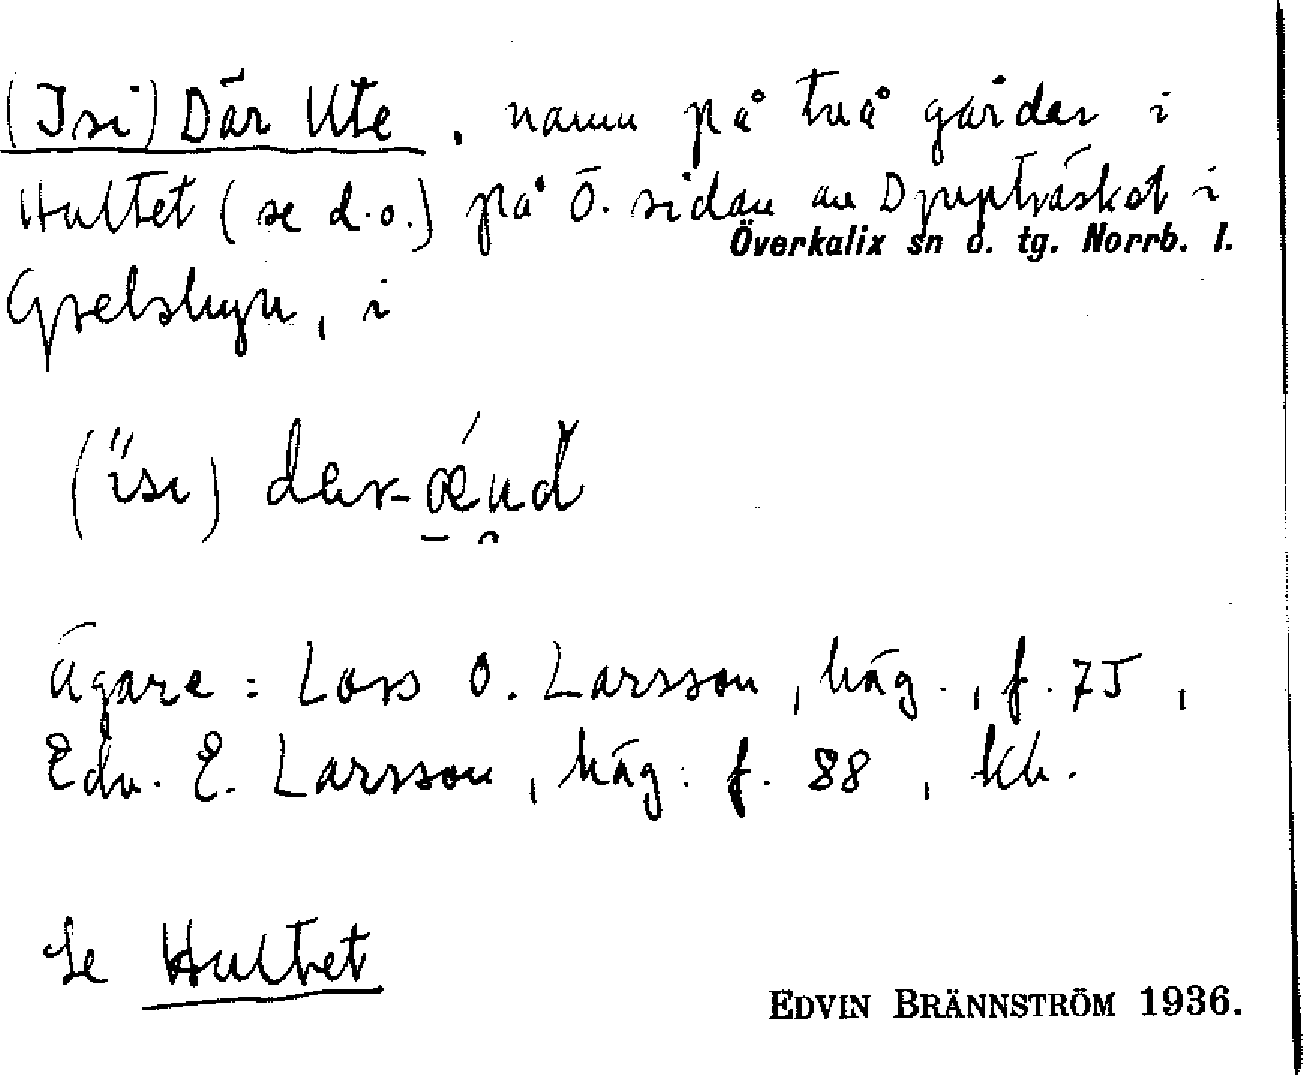 (Isi) Där Ute, namn på två gårdar i
Hultet (se d.o.) på Ö. sidan av Djupträsket i
Överkalix sn o. tg. Norrb. l.
Gyelsbyn, i
(ïsi)
Ägare: Lars O. Larsson, häg., f. 75,
Edv. E. Larsson, häg. f. 88,
Se Hultet
EDVIN BRÄNNSTRÖM 1936.